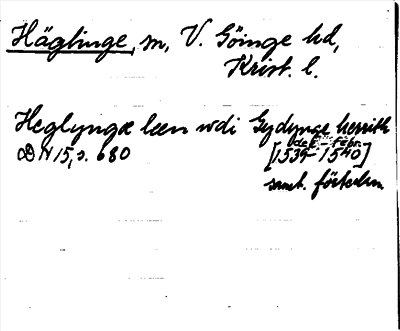 Häglinge, sn, V. Göinge hd,
Krist. l.
Heglyngæ leen udi Gydynge herrith
DN 15, s. 680 [1539-1540]
samt. förteckn.